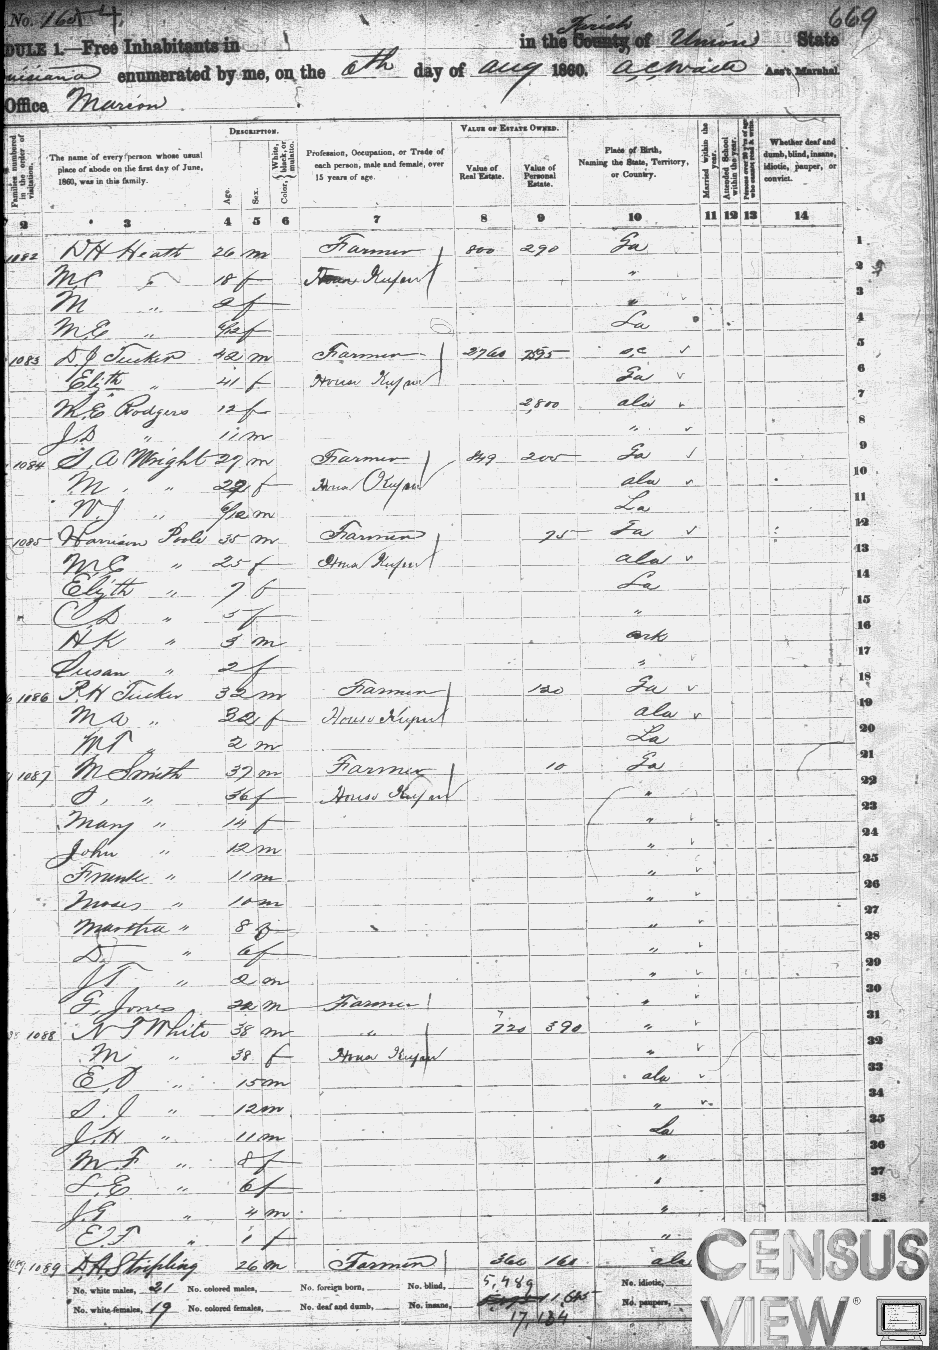 No. 4
DULE 1.—Free Inhabitants in in the County Parish of Union State
uisiana enumerated by me, on the 6th day of Aug 1860. A. C. Waite Ass't Marshal.
669
Office Marion
Families numbered in the order of visitation.
The name of every person whose usual place of abode on the first day of June, 1860, was in this family.
DESCRIPTION.
Age.
Sex.
Color, { White, black, or mulatto.
Profession, Occupation, or Trade of each person, male and female, over 15 years of age.
VALUE OF ESTATE OWNED.
Value of Real Estate.
Value of Personal Estate.
Place of Birth, Naming the State, Territory, or Country.
Married within the year.
Attended School within the year.
Persons over 20 y'rs of age who cannot read & write.
Whether deaf and dumb, blind, insane, idiotic, pauper, or convict.
2 3 4 5 6 7 8 9 10 11 12 13 14
1082 D H Heath 26 m Farmer 800 290 Ga 1
M C " 18 f House Keeper " 2
M " 2 f " 3
M E " f La 4
1083 D J Tucker 42 m Farmer 2760 S.C 5
Elizth " 41 f House Keeper Ga 6
M. E Rodgers 12 f 2,800 ala 7
J. D " 11 m " 8
1084 S. A Wright 29 m Farmer 849 200 Ga 9
M " f House Keeper ala 10
W J " m La 11
1085 Harrison Poole 35 m Farmer 75 Ga 12
M C " 25 f House Keeper ala 13
Elizth " 7 f La 14
C. D " 5 f " 15
H K " 3 m ark 16
Susan " 2 f " 17
1086 R H Tucker 32 m Farmer 120 Ga 18
M a " 32 f House Keeper ala 19
M T " 2 m La 20
1087 M Smith 37 m Farmer 10 Ga 21
S, " 36 f House Keeper " 22
Mary " 14 f " 23
John " 12 m " 24
Frank " 11 m " 25
Moses " 10 m " 26
Martha " 8 f " 27
D. " 6 f " 28
J T " 2 m " 29
G, Jones 22 m Farmer " 30
1088 N T White 38 m " 720 390 " 31
M " 38 f House Keeper " 32
E, D " 15 m ala 33
S. J " 12 m " 34
J. H " 11 m La 35
M. F " 8 f " 36
S. E " 6 f " 37
J. G " 4 m " 38
E. F " 1 f "
1089 D. A. Stripling 26 m Farmer 360 160 ala
No. white males, 21 No. colored males, No. foreign born, No. blind, 5,489 No. idiotic,
No. white females, 19 No. colored females, No. deaf and dumb, No. insane, No. paupers,
CENSUS
VIEW®